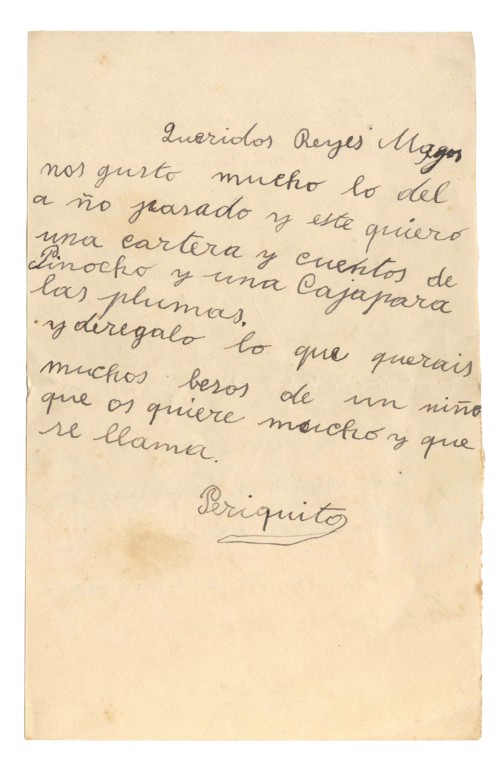 Queridos Reyes Magos
nos gusto mucho lo del
a ño pasado y este quiero
una cartera y cuentos de
Pinocho y una Cajapara
las plumas.
y deregalo lo que querais
muchos besos de un niño
que os quiere mucho y que
se llama.
Periquito